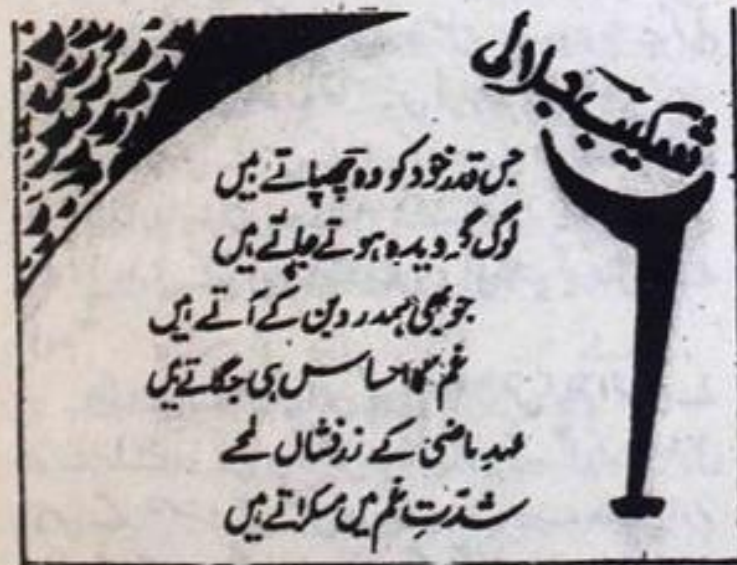 شکیب جلالی
جس قدر خود کو وہ چھپاتے ہیں
لوگ گرویدہ ہوتے جاتے ہیں
جو بھی ہمدرد بن کے آتے ہیں
غم کا احساس ہی جگاتے ہیں
عہدِ ماضی کے زرفشاں لمحے
شدّتِ غم میں مسکراتے ہیں